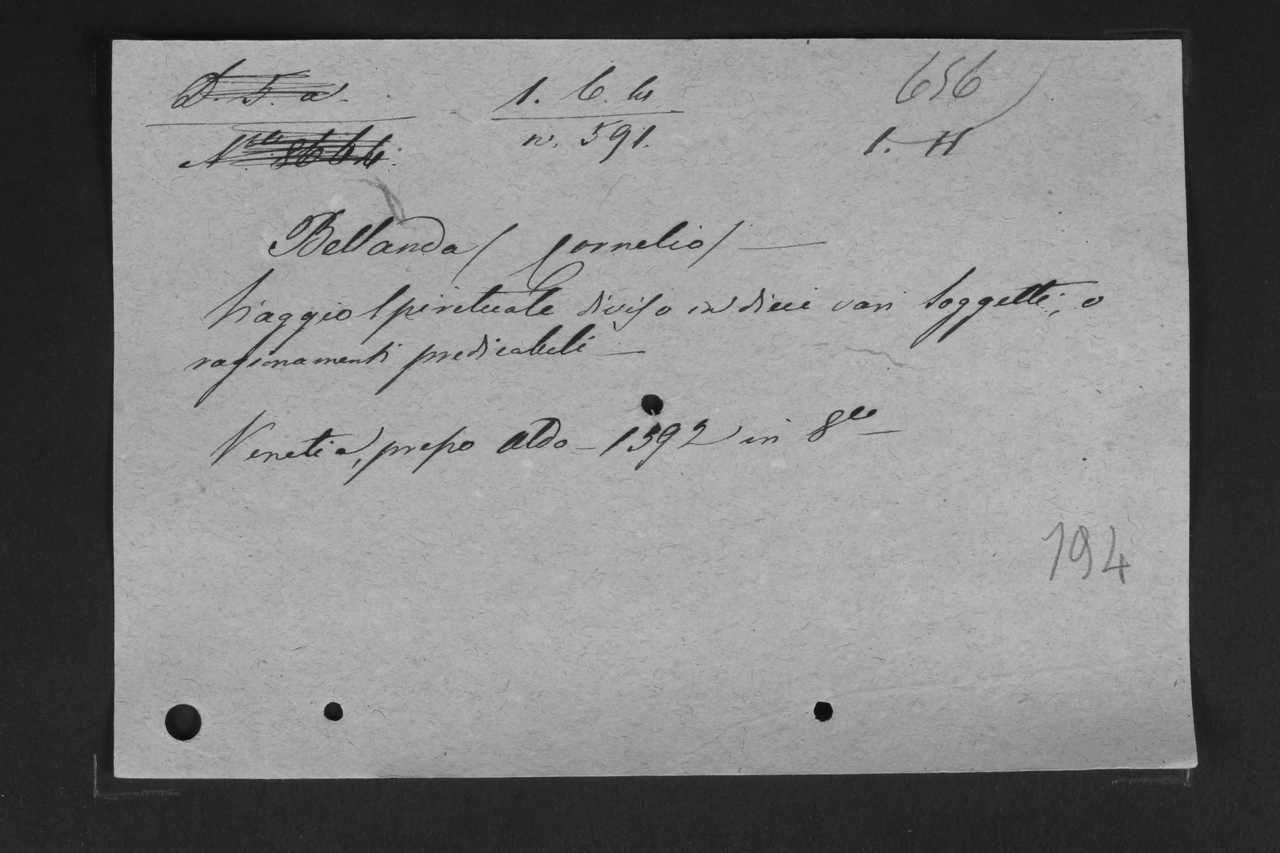 D. 5. a. 1. 6. 4 656
N.ro 8664. n. 591. 1. H
Bellanda (Cornelio) —
Viaggio Spirituale diviso in dieci vari Soggetti, o
ragionamenti predicabili —
Venetia, presso Aldo — 1592 in 8vo —
194